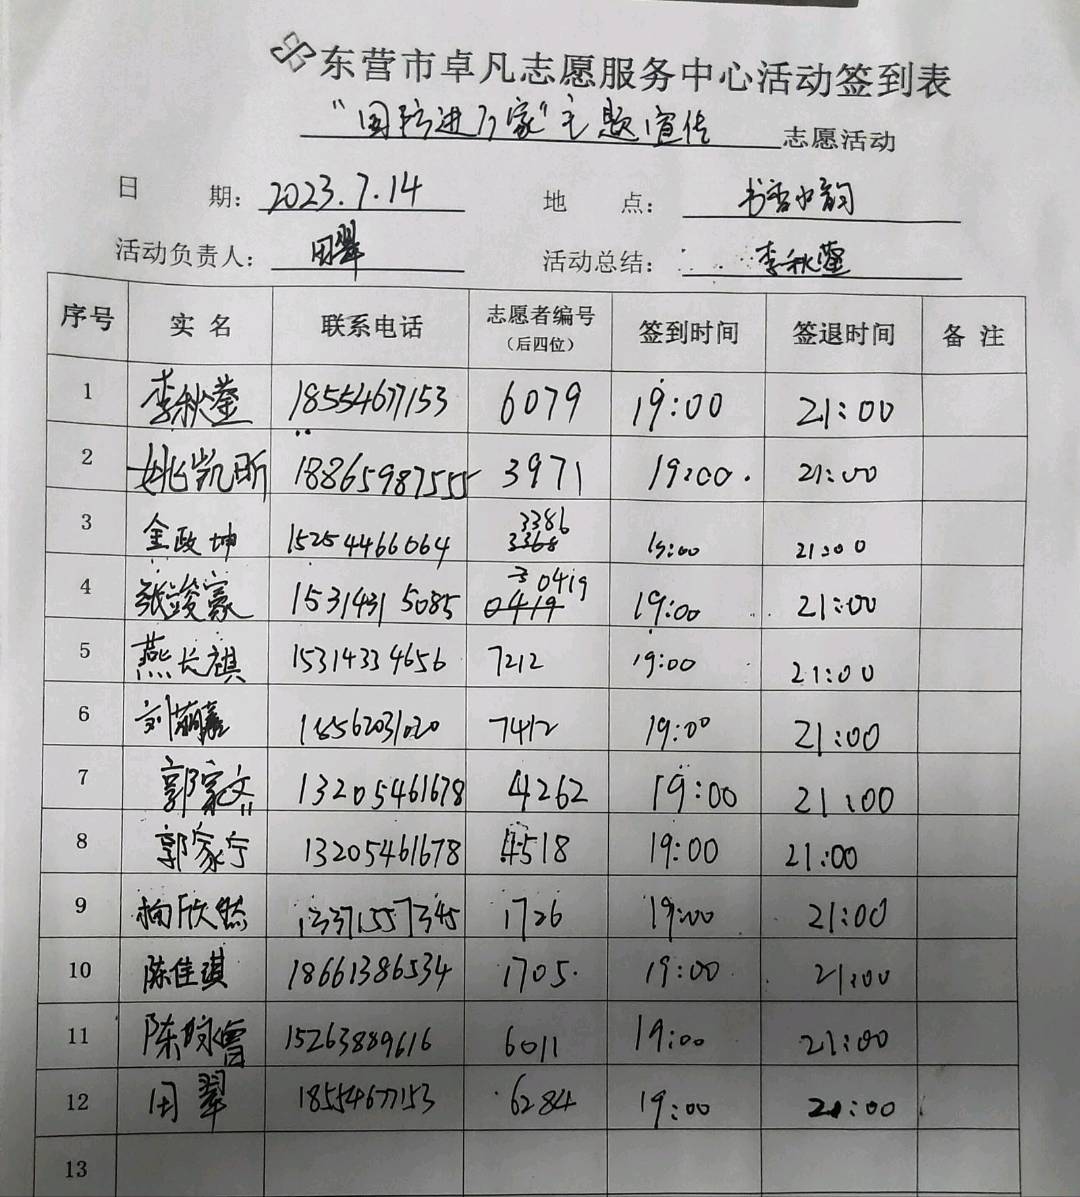 东营市卓凡志愿服务中心活动签到表
“国防进万家”主题宣传 志愿活动
日 期: 2023.7.14 地 点: 书香水韵
活动负责人: 田翠 活动总结: 李秋莹
序号 实名 联系电话 志愿者编号（后四位） 签到时间 签退时间 备注
1 李秋莹 18554677153 6079 19:00 21:00
2 姚凯昕 18865987555 3971 19:00. 21:00
3 金政坤 15254466064 3386 3368 19:00 21:00
4 张竣豪 15314315085 0419 0419 19:00 21:00
5 燕长祺 15314334656 7212 19:00 21:00
6 18562031020 7412 19:00 21:00
7 郭家文 13205461678 4262 19:00 21:00
8 郭家宁 13205461678 4518 19:00 21:00
9 欣然 13371557345 1726 19:00 21:00
10 陈佳琪 18661386534 1705. 19:00 21:00
11 陈 15263889616 6011 19:00 21:00
12 田翠 18554677153 6284 19:00 21:00
13